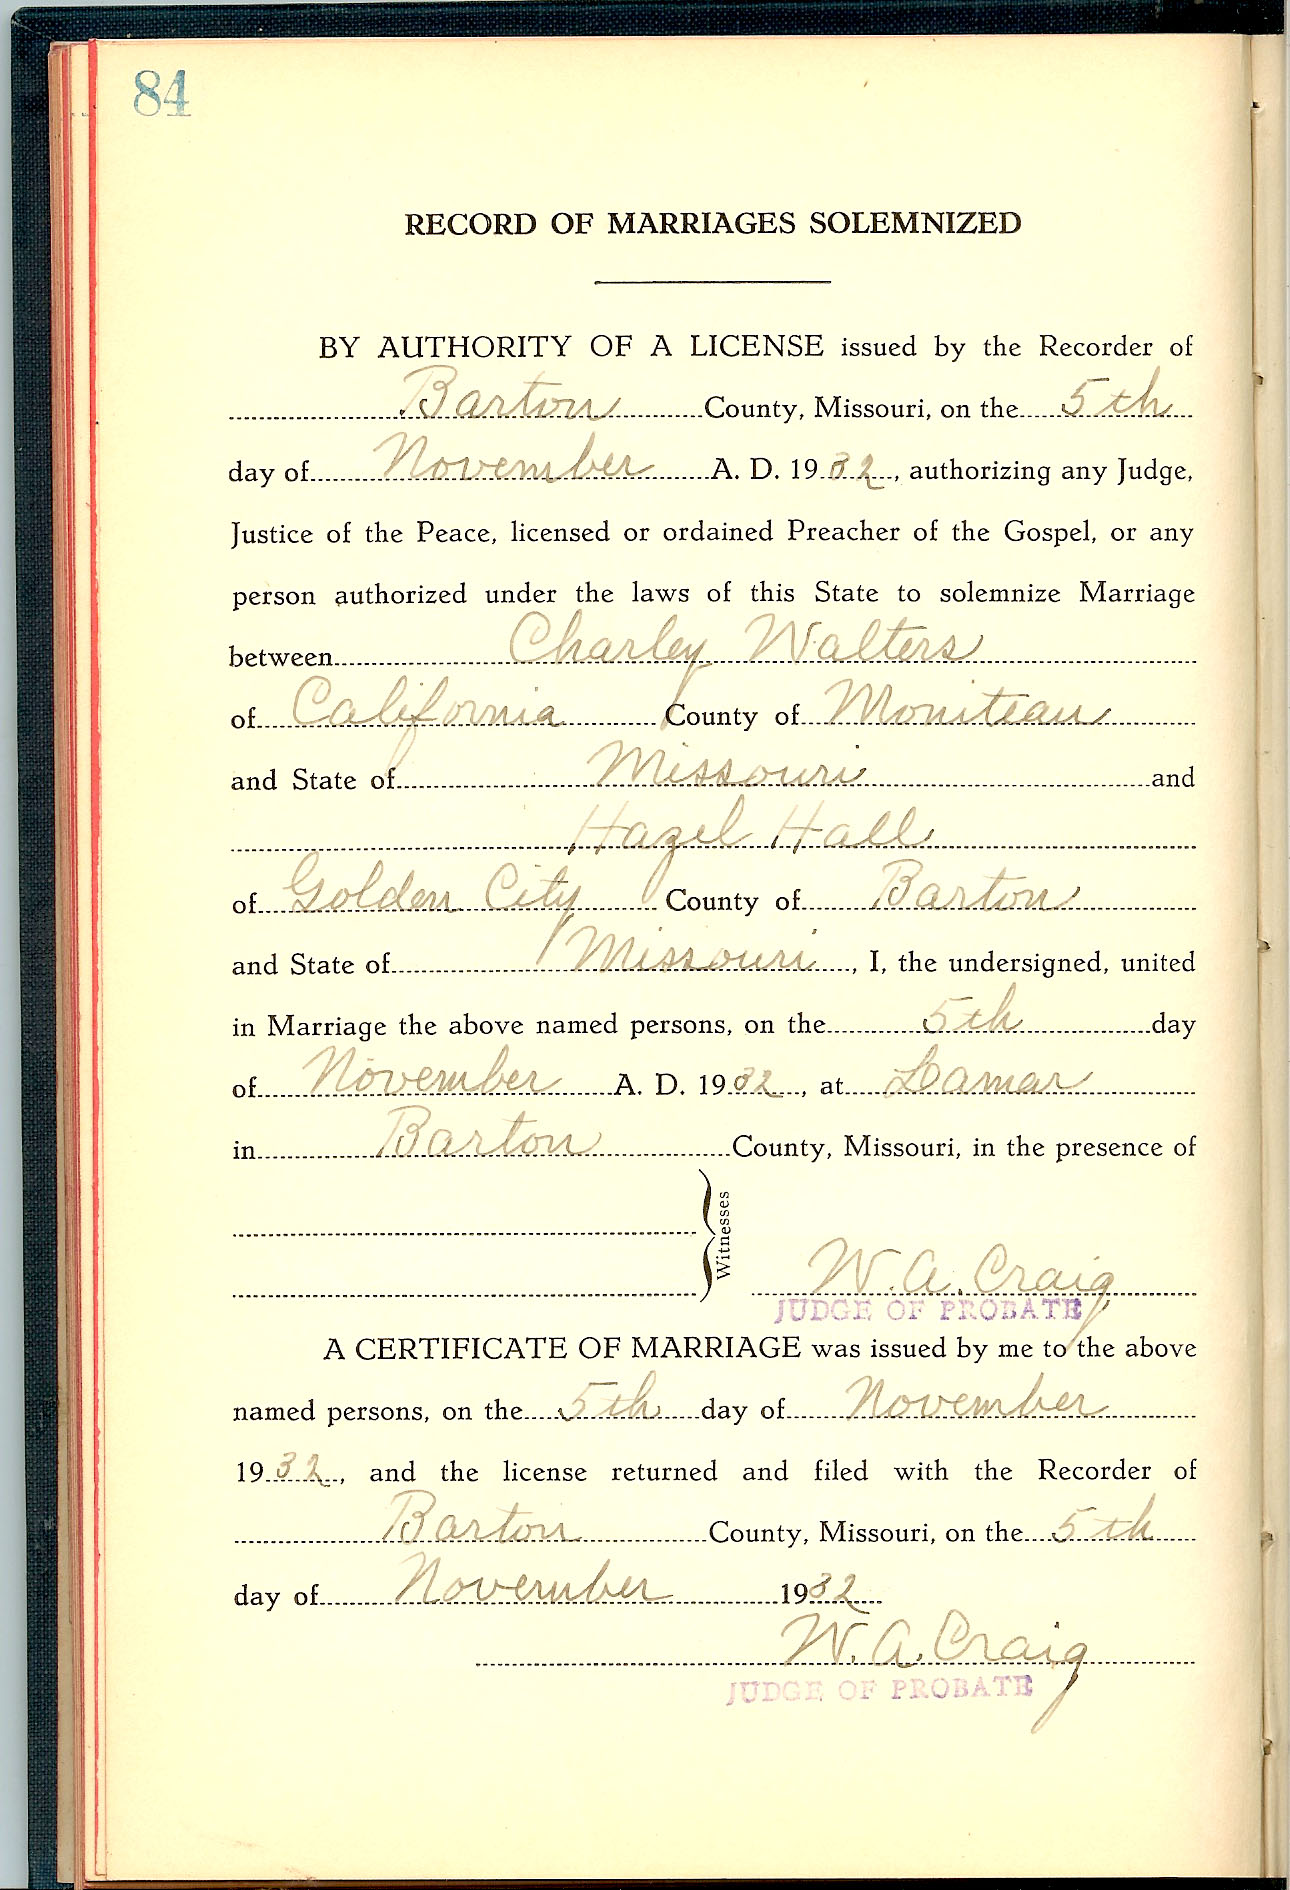 84
RECORD OF MARRIAGES SOLEMNIZED
BY AUTHORITY OF A LICENSE issued by the Recorder of
Barton County, Missouri, on the 5th
day of November A. D. 1932, authorizing any Judge,
Justice of the Peace, licensed or ordained Preacher of the Gospel, or any
person authorized under the laws of this State to solemnize Marriage
between Charley Walters
of California County of Moniteau
and State of Missouri and
Hazel Hall
of Golden City County of Barton
and State of Missouri, I, the undersigned, united
in Marriage the above named persons, on the 5th day
of November A. D. 1932, at Lamar
in Barton County, Missouri, in the presence of
Witnesses
W. A. Craig
JUDGE OF PROBATE
A CERTIFICATE OF MARRIAGE was issued by me to the above
named persons, on the 5th day of November
1932, and the license returned and filed with the Recorder of
Barton County, Missouri, on the 5th
day of November 1932
W. A. Craig
JUDGE OF PROBATE